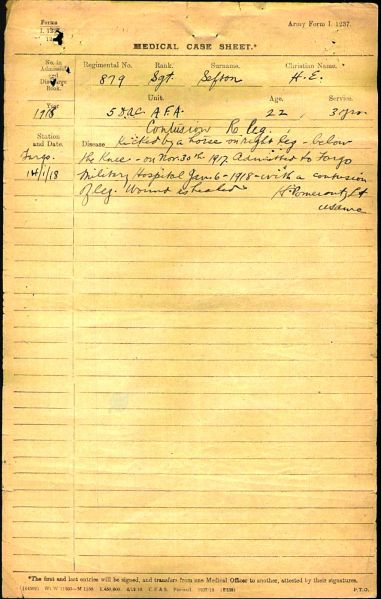 Forms
I. 1237
Army Form I. 1237.
MEDICAL CASE SHEET.*
No. in
Admission
and
Discharge
Book.
Regimental No. Rank. Surname. Christian Name.
879 Sgt Sefton H. E.
Year
1918
Unit. Age. Service.
5 DAC. A.F.A. 22 3 yrs
Station
and Date.
Contusion R. leg.
Disease Kicked by a horse on right leg - below
Fargo.
14/1/18
the knee - on Nov. 30th 1917 Admitted to Fargo
Military Hospital Jan 6 - 1918 - with a contusion
of leg. Wound is healed
H. Pomerantz Lt
*The first and last entries will be signed, and transfers from one Medical Officer to another, attested by their signatures.
P.T.O.